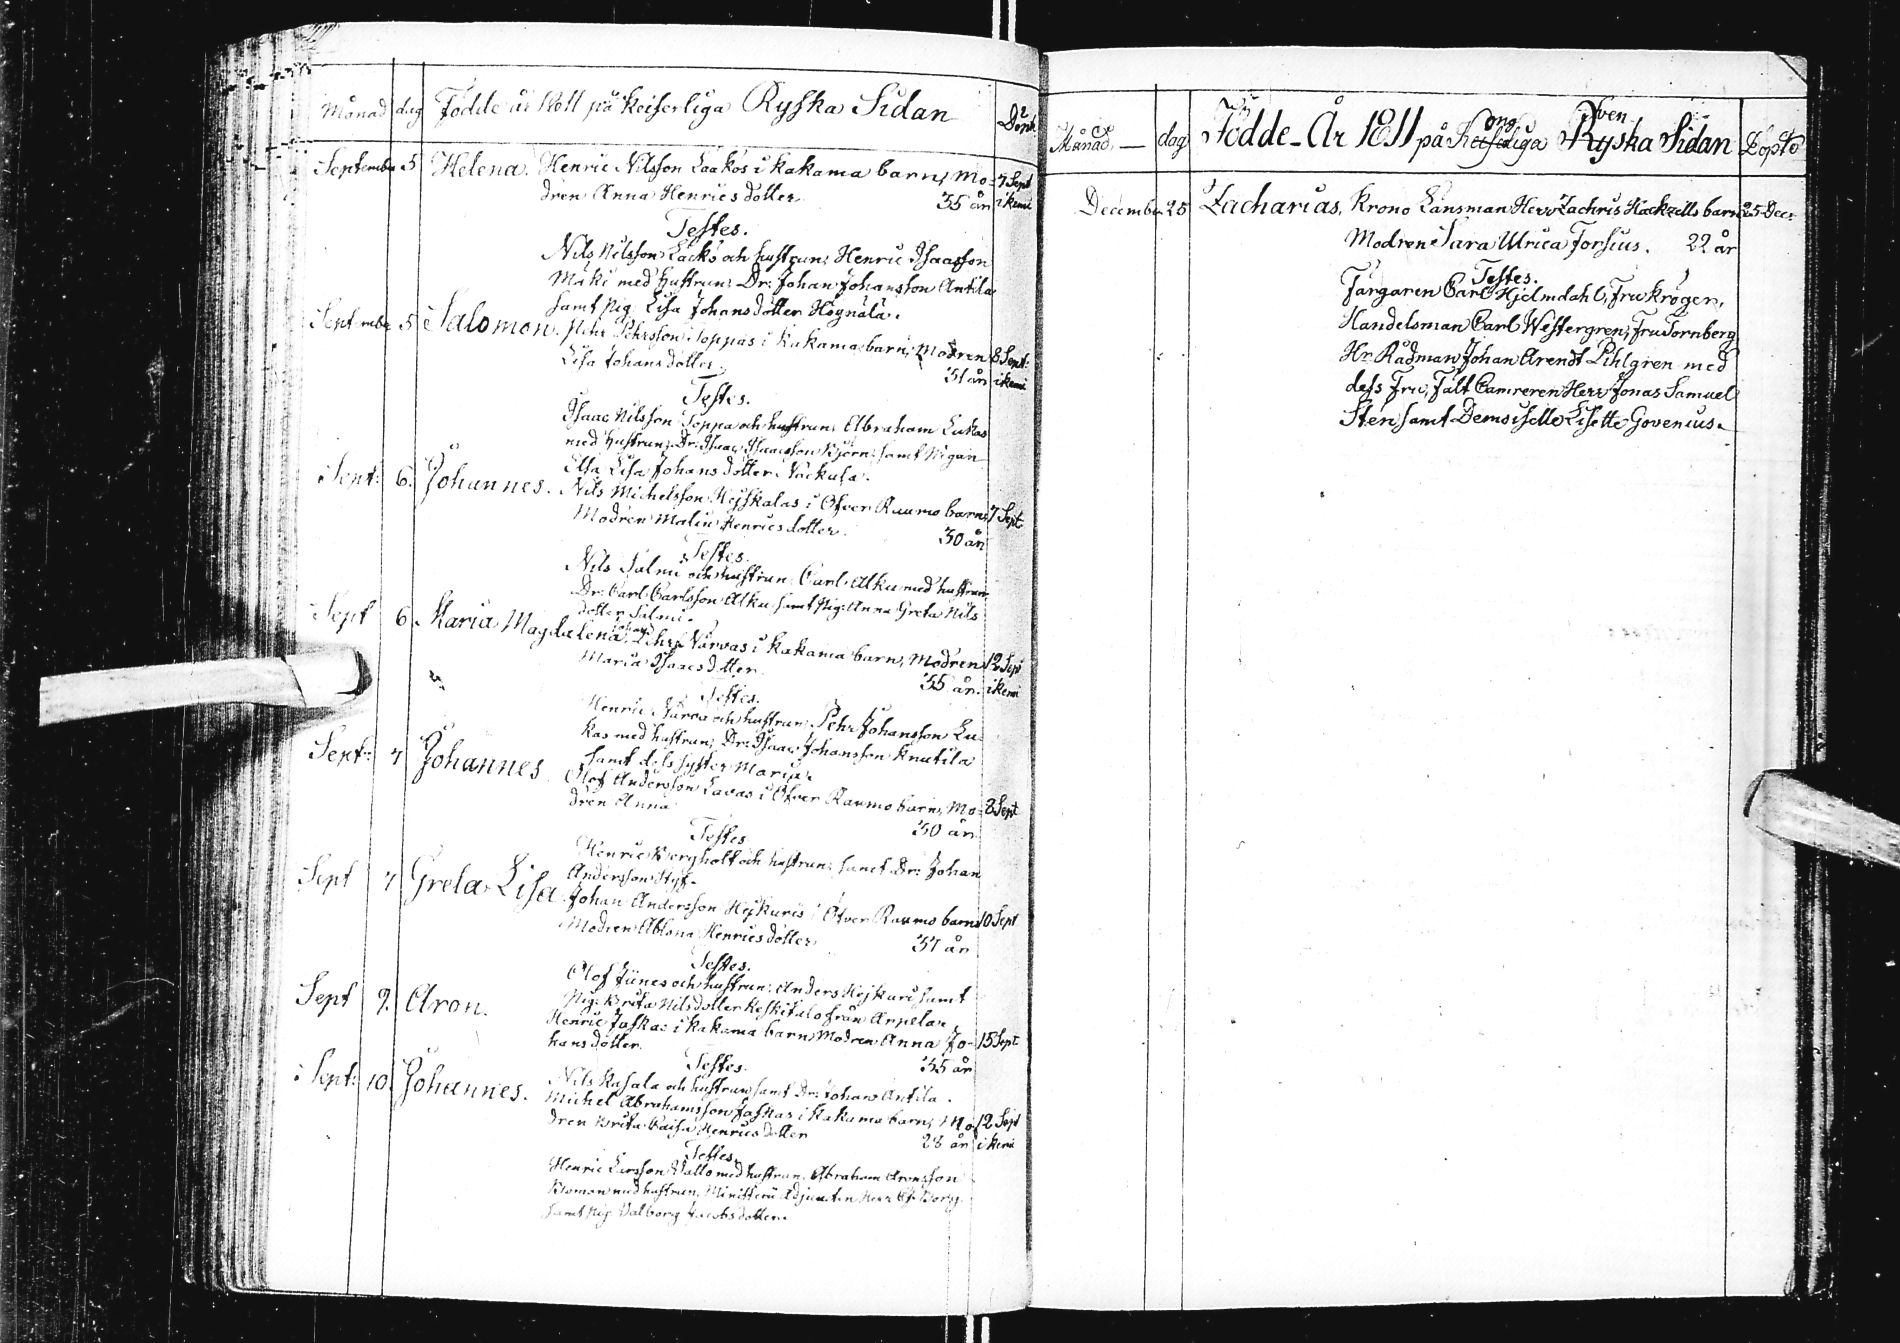 Månad dag Födde år 1811 på Keiserliga Ryska Sidan Döpt
September 5 Helena. Henric Nilsson Laakos i Kakama barn, Mo- 7 Sept
dren Anna Henricsdotter 35 år i Kemi
Testes.
Nils Nilsson Laako och hustrun; Henric Isaacsson
Mäki med hustrun; Dr: Johan Johansson Antila
samt Pig. Lisa Johansdotter Hognala.
September 5 Salomon. Pehr Pehrsson Soppas i Kakama barn, Modren 8 Sept:
Lisa Johansdotter 31 år i Kemi
Testes.
Isaac Nilsson Soppa och hustrun; Abraham Lukas
med hustrun; Dr: Isaac Isaacsson Björn; samt Pigan
Elsa Lisa Johansdotter
Sept: 6. Johannes. Nils Michelsson Hejskalas i Öfver Raumo barn; 7 Sept
Modren Malin Henricsdotter. 30 år
Testes.
Nils Salmi och hustrun; Carl Alku med hustrun
Dr: Carl Carlsson Alku samt Pig: Anna Greta Nils
dotter Salmi.
Sept 6 Maria Magdalena. Johan Pehrs Narvas i Kakama barn, Modren 12 Sept
Maria Isaacsdotter 35 år. i Kemi
Testes.
Henric Narva och hustrun; Pehr Johansson Lu-
kas med hustrun; Dr: Isaac Johansson Knutila
samt dess syster Maria.
Sept: 7 Johannes Olof Andersson Lavas i Öfver Raumo barn, Mo- 8 Sept
dren Anna 30 år
Testes
Henric Bergholt och hustrun; samt Dr: Johan
Andersson Styf.
Sept 7 Greta Lisa Johan Andersson Hejkuris i Öfver Raumo barn 10 Sept
Modren Henricsdotter 37 år
Testes.
Olof och hustrun; Anders Hejkuri samt
Pig: Brita Nilsdotter Keskitalo från Arpela.
Sept 9. Aron. Henric Jaskas i Kakama barn, Modren Anna Jo- 15 Sept
hansdotter. 35 år
Testes.
Nils Kasala och hustrun, samt Dr: Johan Antila.
Sept: 10. Johannes. Michel Abrahamsson Jaskas i Kakama barn, Mo- 12 Sept
dren Brita Caisa Henricsdotter 28 år i Kemi
Testes.
Henric Larsson Vallo med hustrun, Abraham Aronsson
med hustrun, Ministerii Adjuncten Herr
samt Pig Valborg Jacobsdotter.
Månad dag Födde År 1811 på Kejserliga ong Ryska Sven Sidan Döpte
December 25 Zacharias. Krono Länsman Herr Zachris Hackzells barn 25 Dec:
Modren Sara Ulrica Forsius. 22 år
Testes.
Färgaren Carl Hjelmdahl, Fru Kröger,
Handelsman Carl Westergren, Fru Tornberg
Hr Rådman Johan Arendt Pihlgren med
dess Fru, Fält Camreren Herr Jonas Samuel
Sten samt Demoiselle Lisette Govenius.